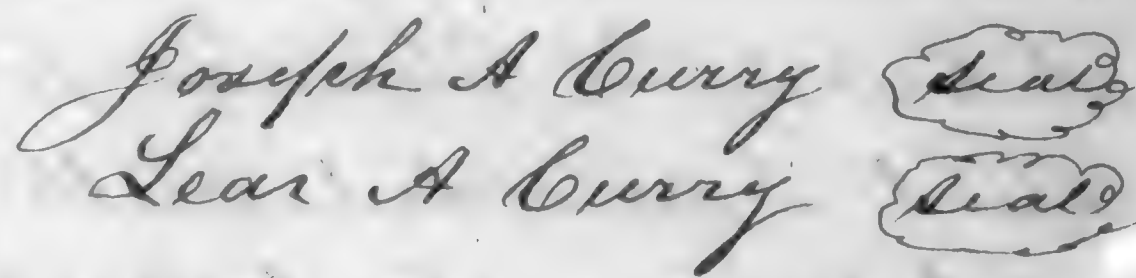 Joseph A Curry seal
Lear A Curry seal